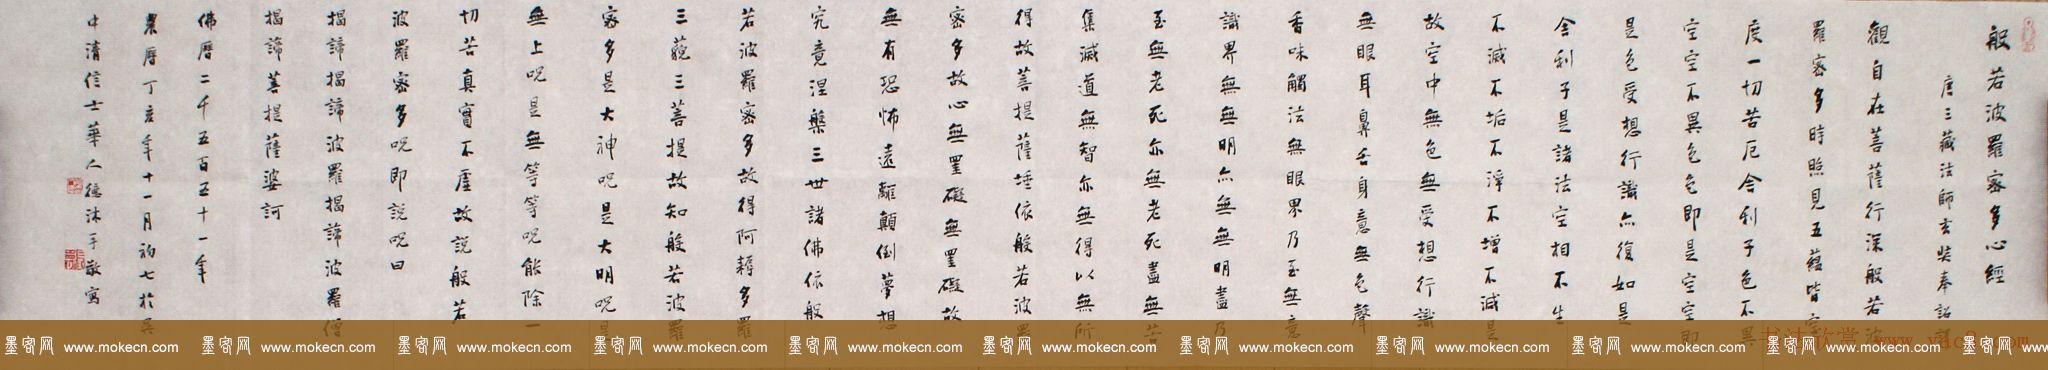 般若波羅蜜多心經
唐三藏法師玄奘奉詔譯
觀自在菩薩行深般若波
羅蜜多時照見五蘊皆空
度一切苦厄舍利子色不異
空空不異色色即是空空即
是色受想行識亦復如是
舍利子是諸法空相不生
不滅不垢不淨不增不減是
故空中無色無受想行識
無眼耳鼻舌身意無色聲
香味觸法無眼界乃至無意
識界無無明亦無無明盡乃
至無老死亦無老死盡無苦
集滅道無智亦無得以無所
得故菩提薩埵依般若波羅
蜜多故心無罣礙無罣礙故
無有恐怖遠離顛倒夢想
究竟涅槃三世諸佛依般
若波羅蜜多故得阿耨多羅
三藐三菩提故知般若波羅
蜜多是大神咒是大明咒是
無上咒是無等等咒能除一
切苦真實不虛故說般若
波羅蜜多咒即說咒曰
揭諦揭諦波羅揭諦波羅僧
揭諦菩提薩婆訶
佛曆二千五百五十一年
農曆丁亥年十一月初七於吳
中清信士華人德沐手敬寫
墨客网 www.mokecn.com 墨客网 www.mokecn.com 墨客网 www.mokecn.com 墨客网 www.mokecn.com 墨客网 www.mokecn.com 墨客网 www.mokecn.com 墨客网 www.mokecn.com 墨客网 www.mokecn.com 墨客网 www.mokecn.com 墨客网 www.mokecn.com 墨客网 www
书法欣赏